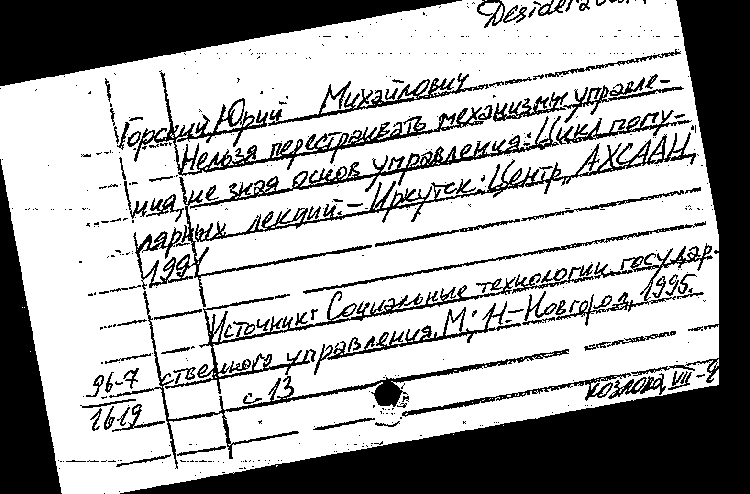 Desiderata
Горский Юрий Михайлович
Нельзя перестраивать механизмы управле-
ния, не зная основ управления: Цикл попу-
лярных лекций. - Иркутск: Центр "АХСААН",
1991
Источник: Социальные технологии государ-
ственного управления. М.; Н-Новгород, 1995.
с. 13
96-7
1619
Козлова, VII-9